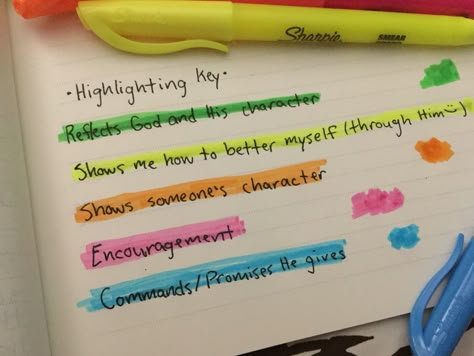 Sharpie
SMEAR
•Highlighting Key•
Reflects God and His character
Shows me how to better myself (through Him☺)
Shows someone's character
Encouragement
Commands/Promises He gives